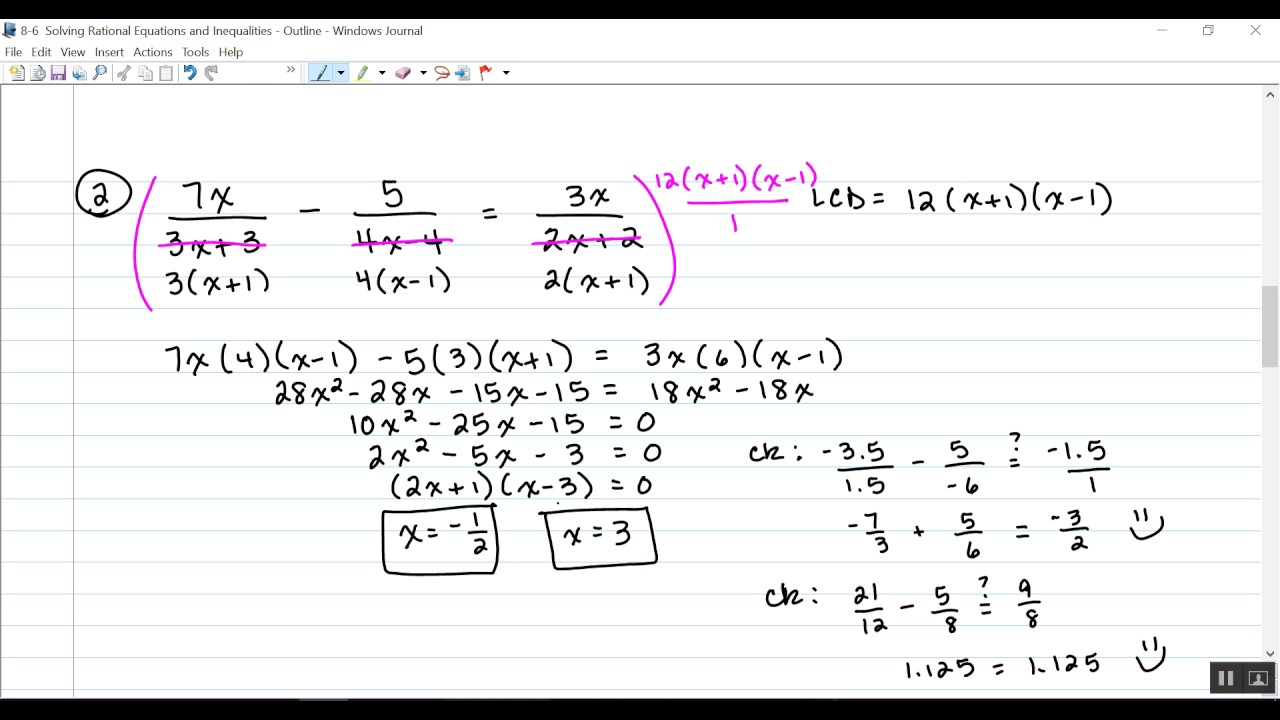 8-6 Solving Rational Equations and Inequalities - Outline - Windows Journal
File Edit View Insert Actions Tools Help
2 ( 7x/(3x+3) - 5/(4x-4) = 3x/(2x+2) ) 12(x+1)(x-1)/1 LCD = 12(x+1)(x-1)
3(x+1) 4(x-1) 2(x+1)
7x(4)(x-1) - 5(3)(x+1) = 3x(6)(x-1)
28x² - 28x - 15x - 15 = 18x² - 18x
10x² - 25x - 15 = 0
2x² - 5x - 3 = 0
(2x+1)(x-3) = 0
x = -1/2 x = 3
ck: -3.5/1.5 - 5/-6 ?= -1.5/1
-7/3 + 5/6 = -3/2
ck: 21/12 - 5/8 ?= 9/8
1.125 = 1.125